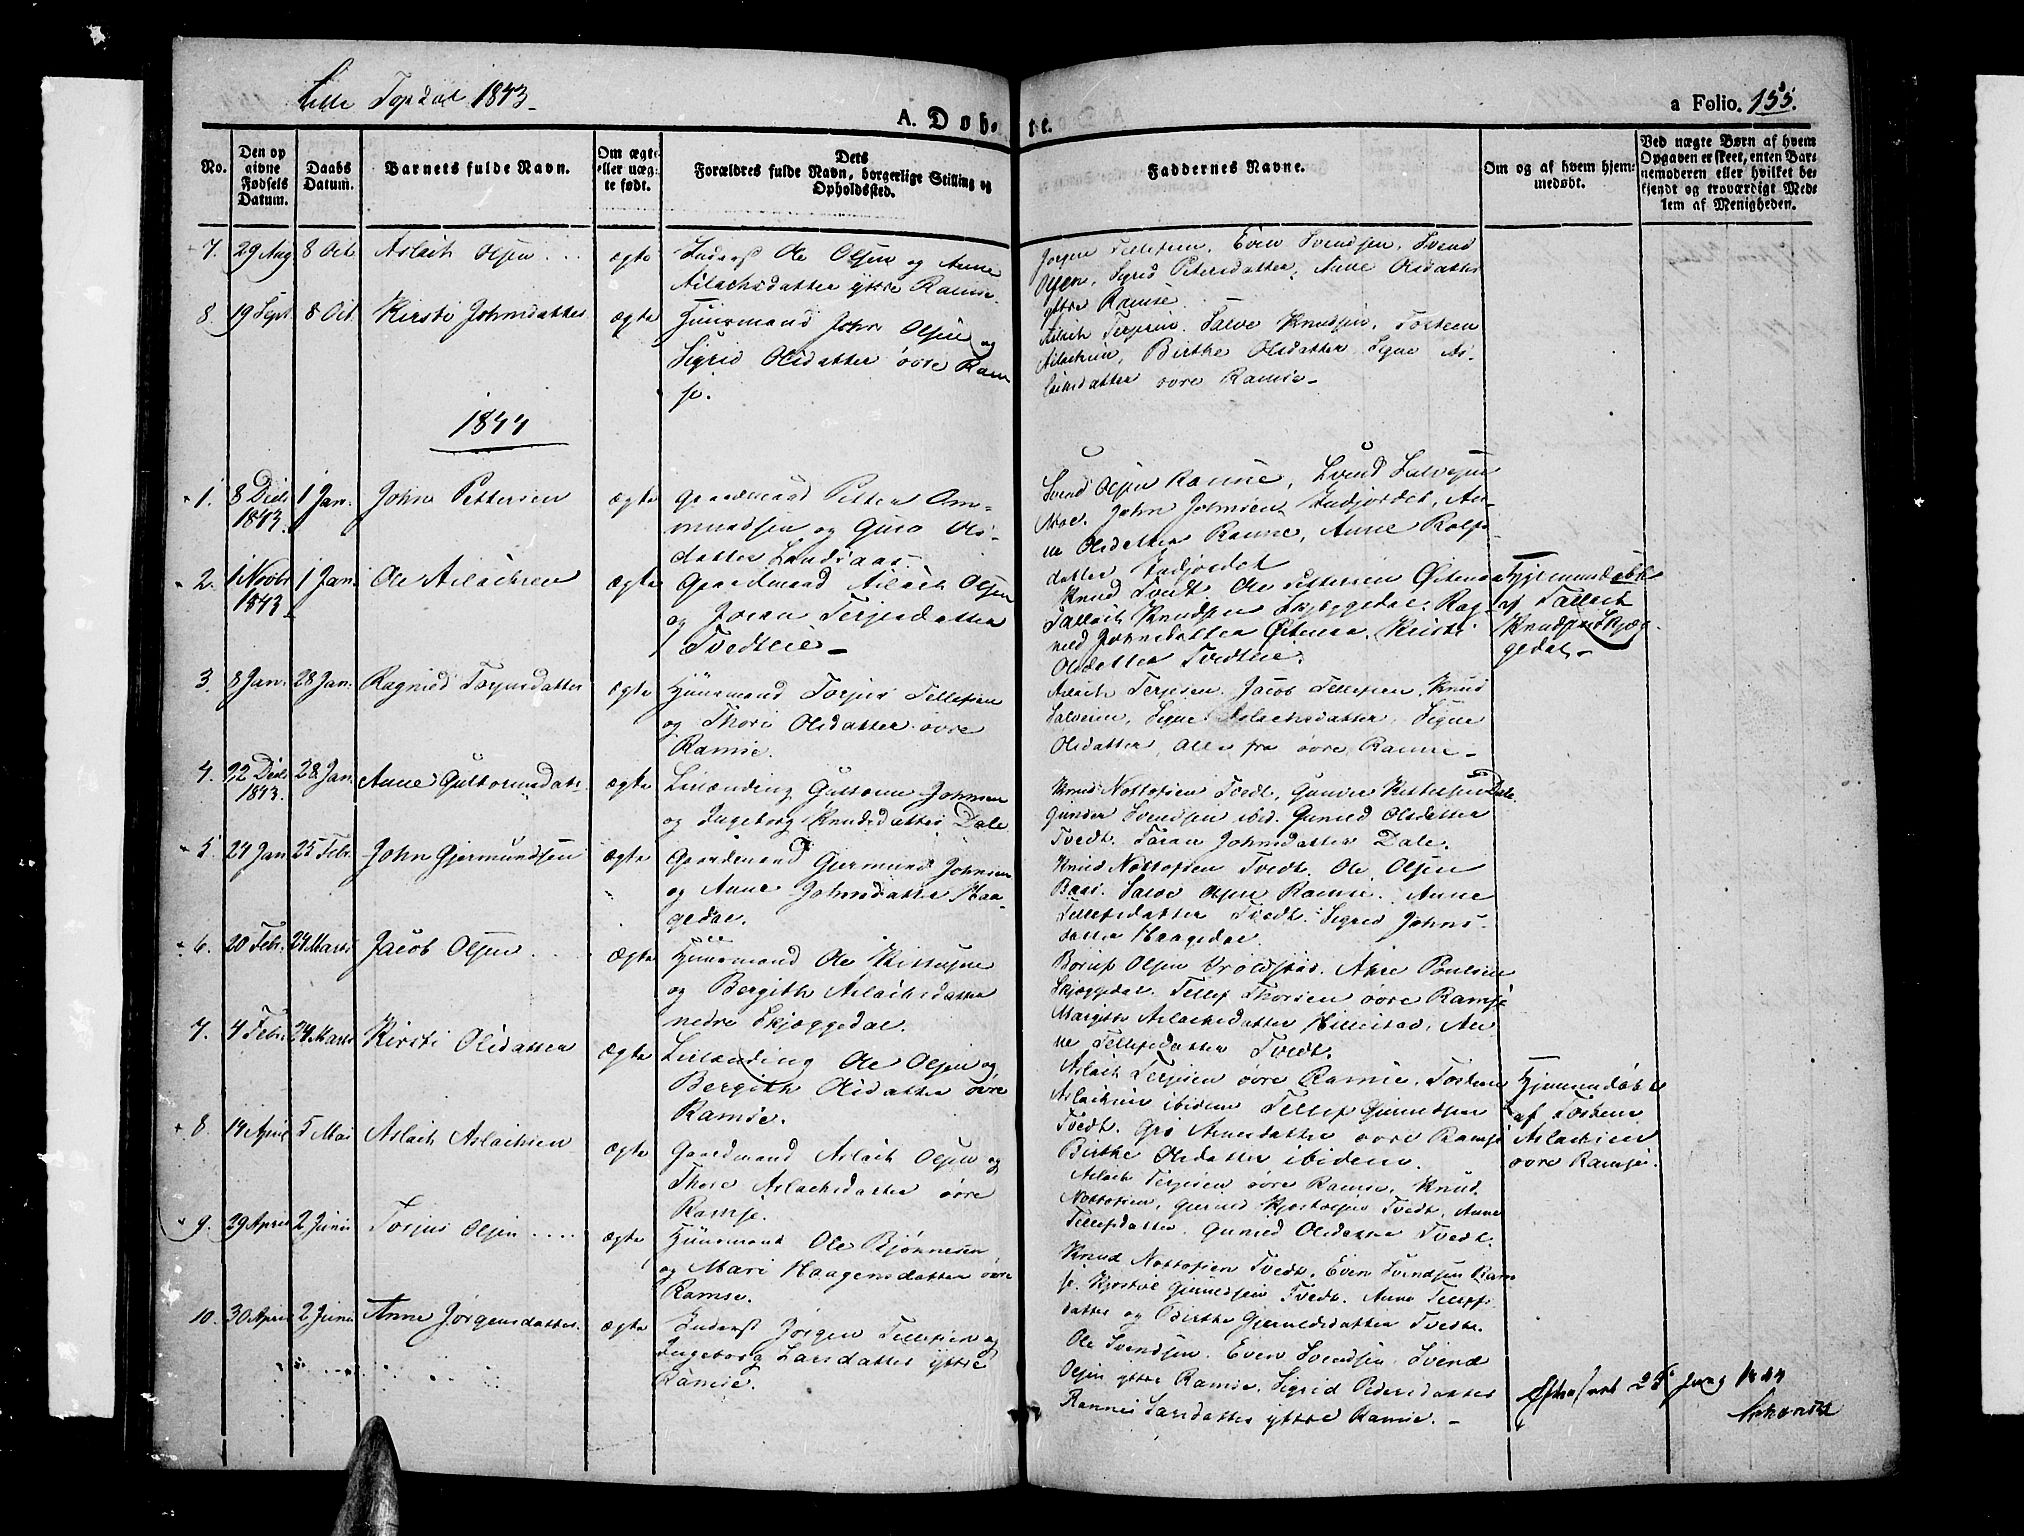 Lille Topdal 1843.
A. Døb- te.
a Folio. 155.
No.
Den op
givne
Fødsels
Datum.
Daabs
Datum.
Barnets fulde Navn.
Om ægte
eller uæg-
te født.
Dets
Forældres fulde Navn, borgerligt Stilling og
Opholdssted.
Faddernes Navne.
Om og af hvem hjem-
medøbt.
Ved uægte Børn af hvem
Opgaven er skeet, enten Bar-
nemoderen eller hvilket be-
kjendt og troværdigt Med-
lem af Menigheden.
7. 29 Aug 8 Oct. Aslach Olsen ægte
Inderst Ole Olsen og Anne
Aslachsdatter yttre Ramse.
Jørgen Tellefsen, Even Svendsen, Svend
Olsen, Sigrid Petersdatter, Anne Olsdatter
yttre Ramse
8. 19 Sept. 8 Oct. Kirsti Johnsdatter ægte
Huusmand John Olsen og
Sigrid Olsdatter øvre Ram
se.
Aslach Terjesen. Salve Knudsen. Tosteen
Aslachsen, Birthe Olsdatter Signe As-
lachsdatter øvre Ramse
1844
1. 8 Decbr 1843. 1 Jan. John Pettersen ægte
Gaardmand Petter Om-
mundsen og Guro Ols-
datter Landsaas.
Svend Olsen Ramse, Svend Salvesen
Moe. John Johnsen Indjordet, An-
ne Olsdatter Ramse, Anne Rolfs-
datter Indjordet
2. 1 Novbr 1843 1 Jan. Ole Aslachsen ægte
Gaardmand Aslach Olsen
og Joran Terjesdatter
Tvedtlie
Knud Tvedt. Ole Pettersen Østenaa
Tallach Knudsen Skjeggedal. Rag-
nild Johnsdatter Østenaa, Kirsti
Olsdatter Tvedtlie.
Hjemmedøbt
af Tallach
Knudsen Skjæg-
gedal.
3. 8 Jan. 28 Jan. Ragnild Torjusdatter ægte
Huusmand Torjus Tellefsen
og Thori Olsdatter øvre
Ramse.
Aslach Terjesen. Jacob Tellefsen. Knud
Salvesen, Signe Aslachsdatter, Signe
Olsdatter, alle fra øvre Ramse
4. 22 Decbr 1843. 28 Jan. Anne Guttormsdatr. ægte
Leilænding Guttorm Johnsen
og Ingeborg Knudsdatter Dale
Knud Nottofsen Tvedt, Gunder Kittelsen Dale.
Gunder Svendsen ibid. Gunild Olsdatter
Tvedt. Taran Johnsdatter Dale.
5. 24 Jan 25 Febr. John Gjermundsen ægte
Gaardmand Gjermund Johnsen
og Anne Johnsdatter Haa-
gedal.
Knud Nottofsen Tvedt. Ole Olsen
Baas. Salve Olsen Ramse. Anne
Tellefsdatter Tvedt. Sigrid Johns-
datter Haagedal.
6. 20 Febr. 24 Marts Jacob Olsen ægte
Huusmand Ole Kittelsen
og Bergith Aslachsdatter
nedre Skjæggedal.
Børuf Olsen Vrolstad. Aane Poulsen
Skjæggedal. Tellef Thorsen øvre Ramse
Margithe Aslachsdatter Hillestad, An-
ne Tellefsdatter Tvedt.
7. 4 Febr. 24 Marts Kirsti Olsdatter ægte
Leilænding Ole Olsen og
Bergith Olsdatter øvre
Ramse.
Aslach Terjesen øvre Ramse, Tosteen
Aslachsen ibidem Tellef Gunnildsen
Tvedt. Gro Arnesdatter øvre Ramse
Birthe Olsdatter ibidem.
Hjemmedøbt
af Tosteen
Aslachsen
øvre Ramse.
8. 14 April 5 Mai Aslach Aslachsen ægte
Gaardmand Aslach Olsen og
Thore Aslachsdatter øvre
Ramse.
Aslach Terjesen øvre Ramse, Knud
Nottofsen, Gunuld Kjostolfsen Tvedt, Anne
Tellefsdatter, Gunild Olsdatter Tvedt.
9. 29 April 2 Junii Torjus Olsen ægte
Huusmand Ole Bjørnesen
og Mari Haagensdatter øvre
Ramse.
Knud Nottofsen Tvedt, Even Svendsen Ram
se, Kjostol Gunnildsen Tvedt. Anne Tellefs
datter og Birthe Gjeruldsdatter Tvedt.
10. 30 April 2 Junii Anne Jørgensdatter. ægte
Inderst Jørgen Tellefsen og
Ingeborg Larsdatter yttre
Ramse.
Ole Svendsen. Even Svendsen, Svend
Olsen yttre Ramse, Sigrid Pedersdatter
Larsdatter yttre Ramse.
1844